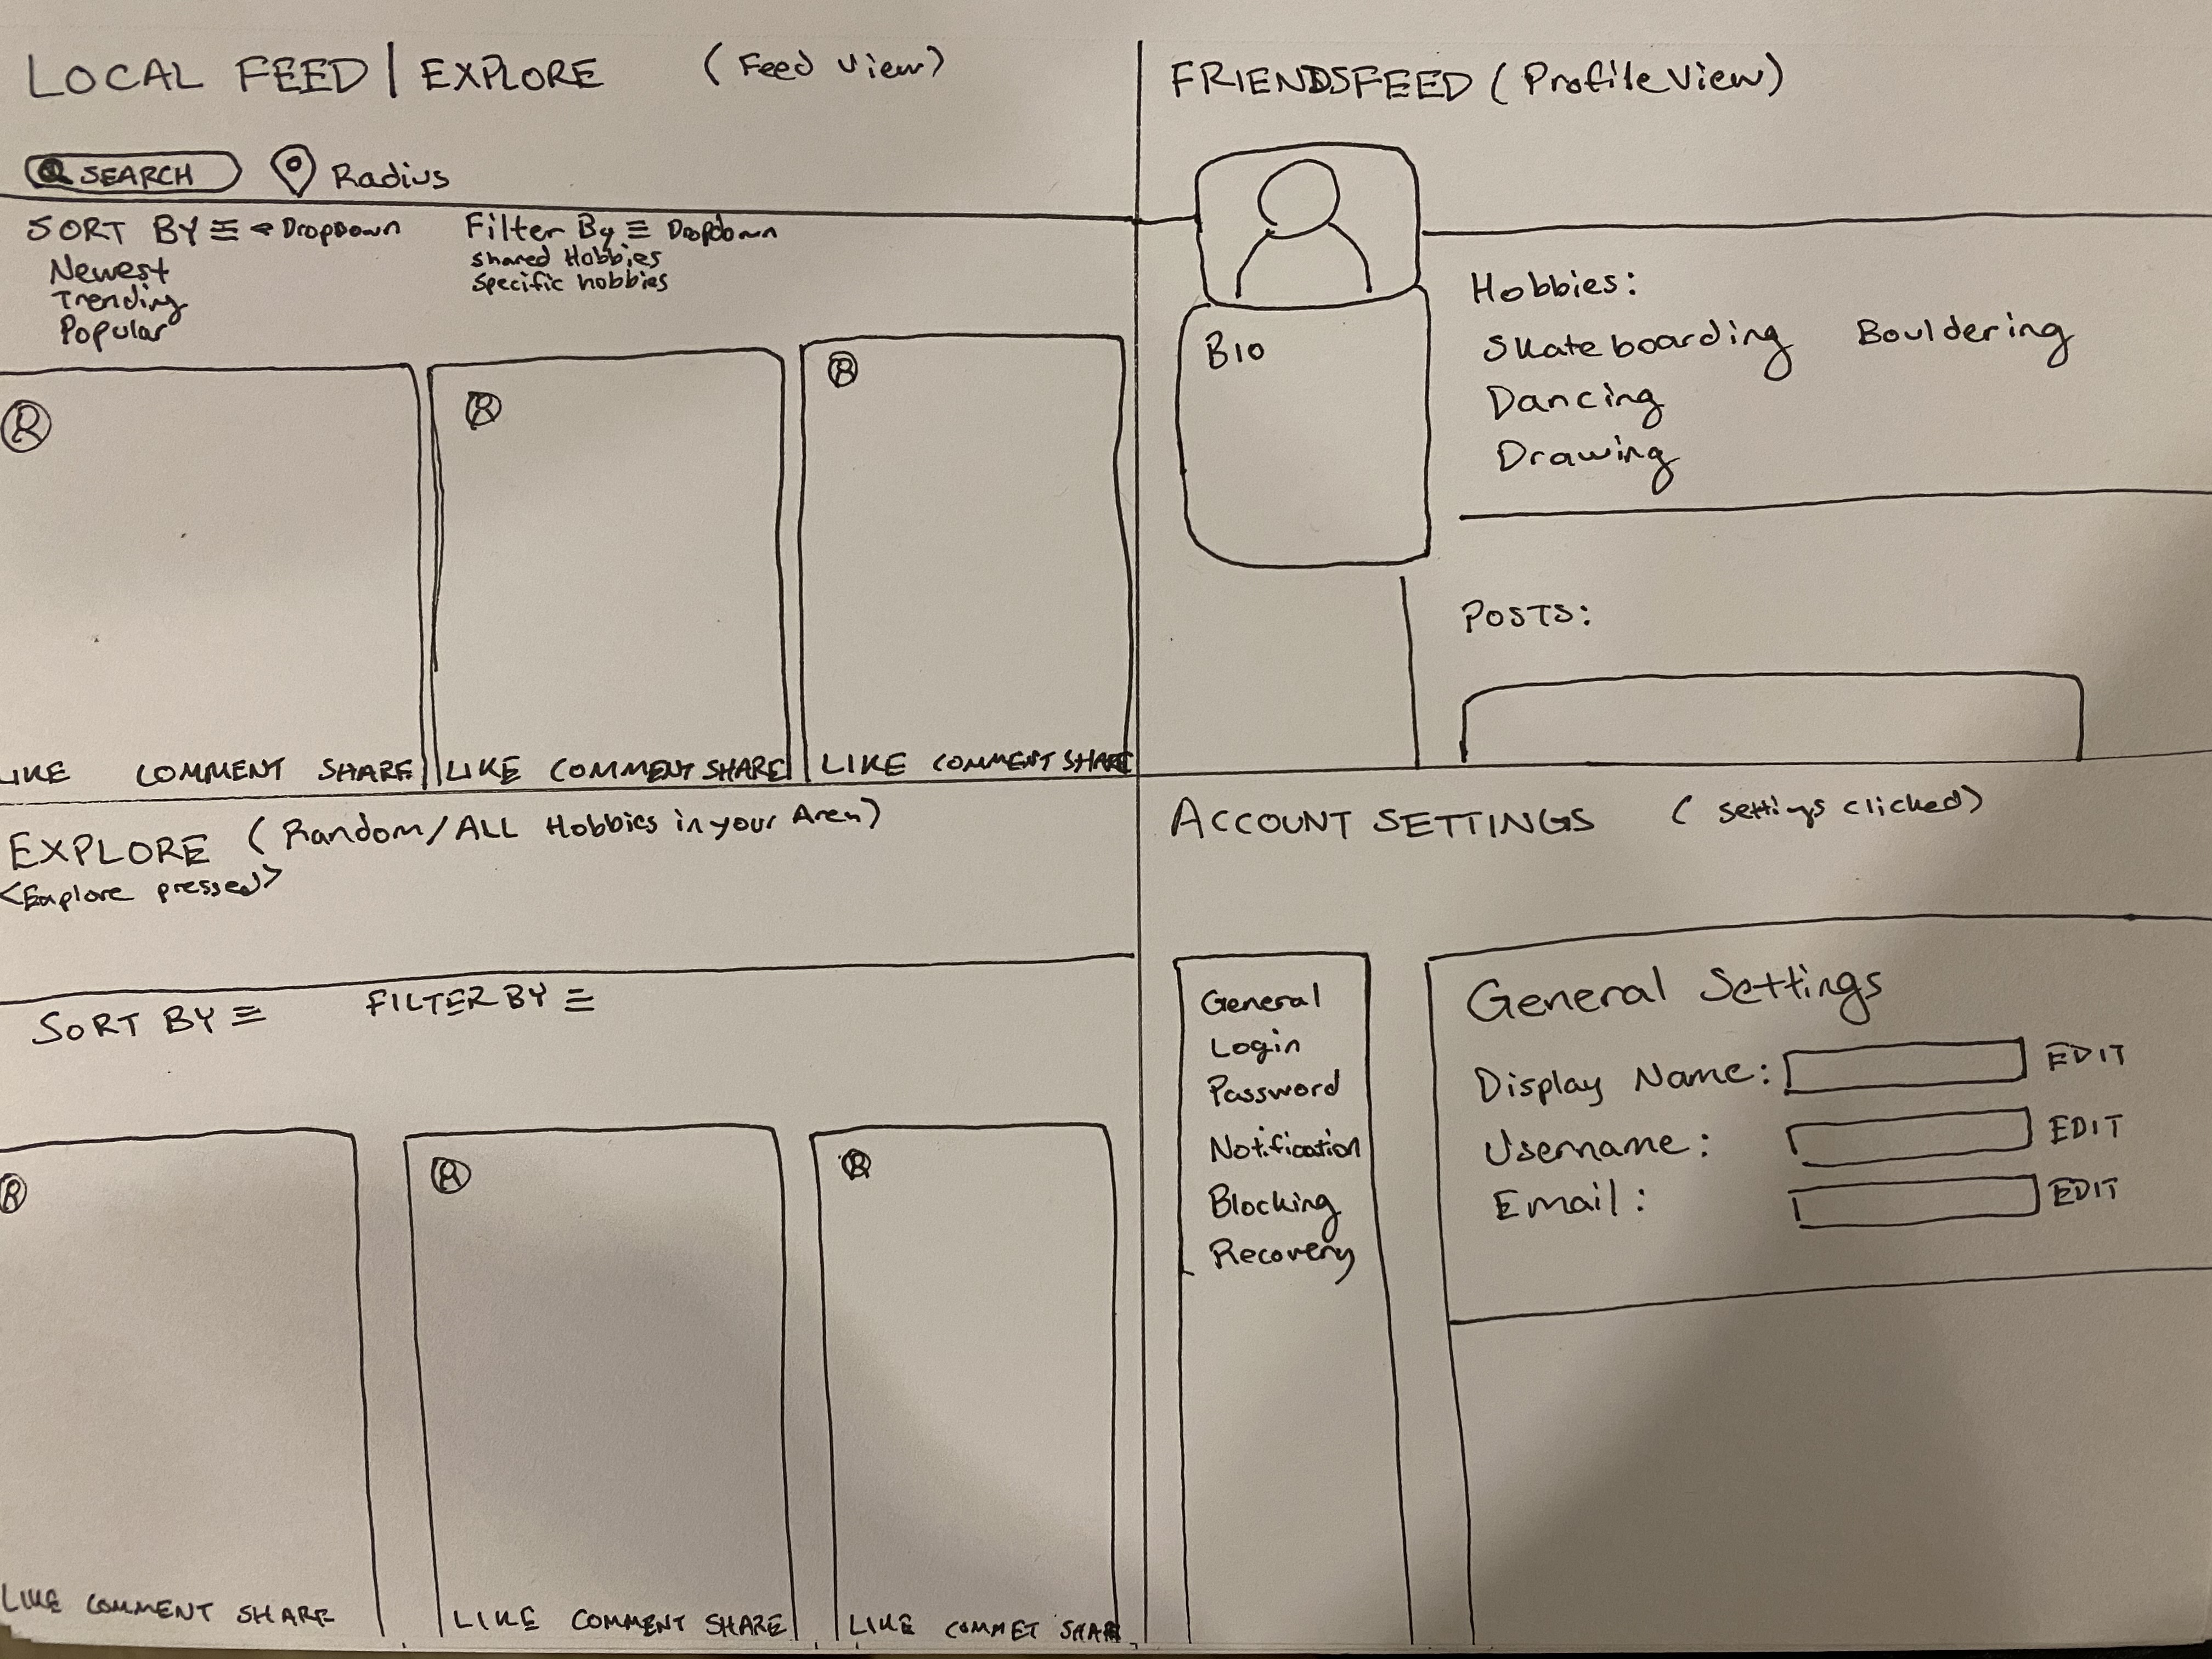 LOCAL FEED | EXPLORE (Feed View)
SEARCH Radius
SORT BY ← DropDown Filter By Dropdown
Newest
Trending
Popular
shared Hobbies
Specific hobbies
LIKE COMMENT SHARE
LIKE COMMENT SHARE
LIKE COMMENT SHARE
FRIENDSFEED (Profile View)
BIO
Hobbies:
Skateboarding Bouldering
Dancing
Drawing
POSTS:
EXPLORE (Random/ALL Hobbies in your Area)
<Explore pressed>
SORT BY FILTER BY
LIKE COMMENT SHARE
LIKE COMMENT SHARE
LIKE COMMET SHARE
ACCOUNT SETTINGS (settings clicked)
General
Login
Password
Notification
Blocking
Recovery
General Settings
Display Name: EDIT
Username: EDIT
Email: EDIT